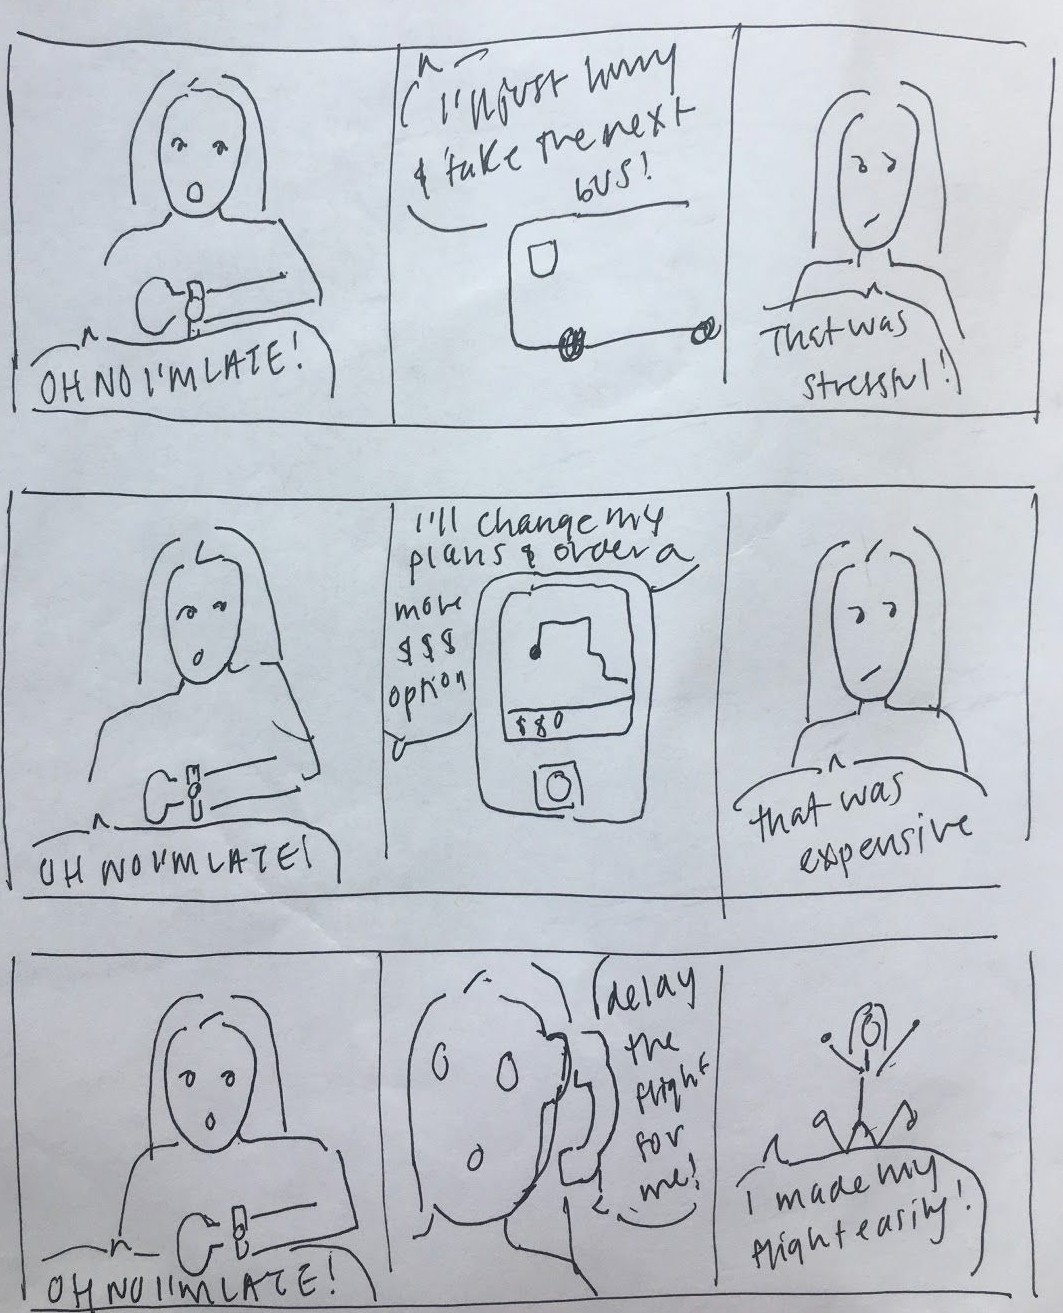 OH NO I'M LATE!
I'll just hurry
& take the next
bus!
That was
stressful!
OH NO I'M LATE!
I'll change my
plans & order a
more
$$$
option
$80
that was
expensive
OH NO I'M LATE!
delay
the
flight
for
me!
I made my
flight easily!